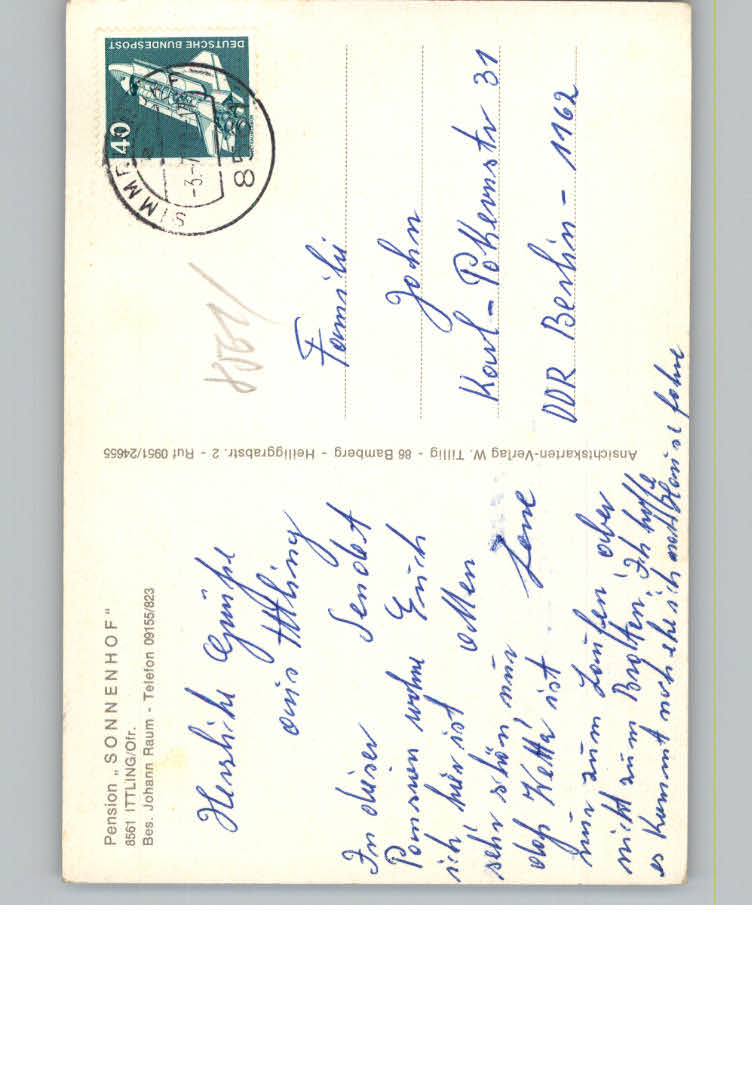 Pension „SONNENHOF"
8561 ITTLING/Ofr.
Bes. Johann Raum - Telefon 09155/823
Herzliche Grüße
aus Ittling
sendet
In dieser
Pension wohne Euch
ich, hier ist
sehr schön nur Lene
daß ist
nur zum Laufen aber
nicht zum Ich hoffe
es kommt noch ehe ich nach Hause fahre
Ansichtskarten-Verlag W. Tillig - 86 Bamberg - Heiliggrabstr. 2 - Ruf 0951/24655
DEUTSCHE BUNDESPOST
40
SIMME
-3.-7
85
8561
Familie
John
Karl-Pokernstr 31
DDR Berlin - 1162